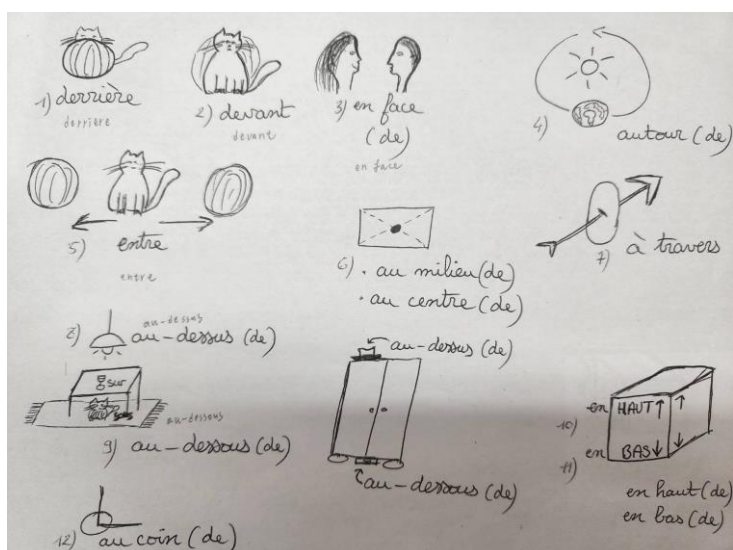 1) derrière
derrière
2) devant
devant
3) en face
(de)
en face
4) autour (de)
5) entre
entre
6) • au milieu (de)
• au centre (de)
7) à travers
au-dessus
8) au-dessus (de)
sur
au-dessous
9) au-dessous (de)
au-dessus (de)
au-dessous (de)
10) en HAUT
11) en BAS
en haut (de)
en bas (de)
12) au coin (de)